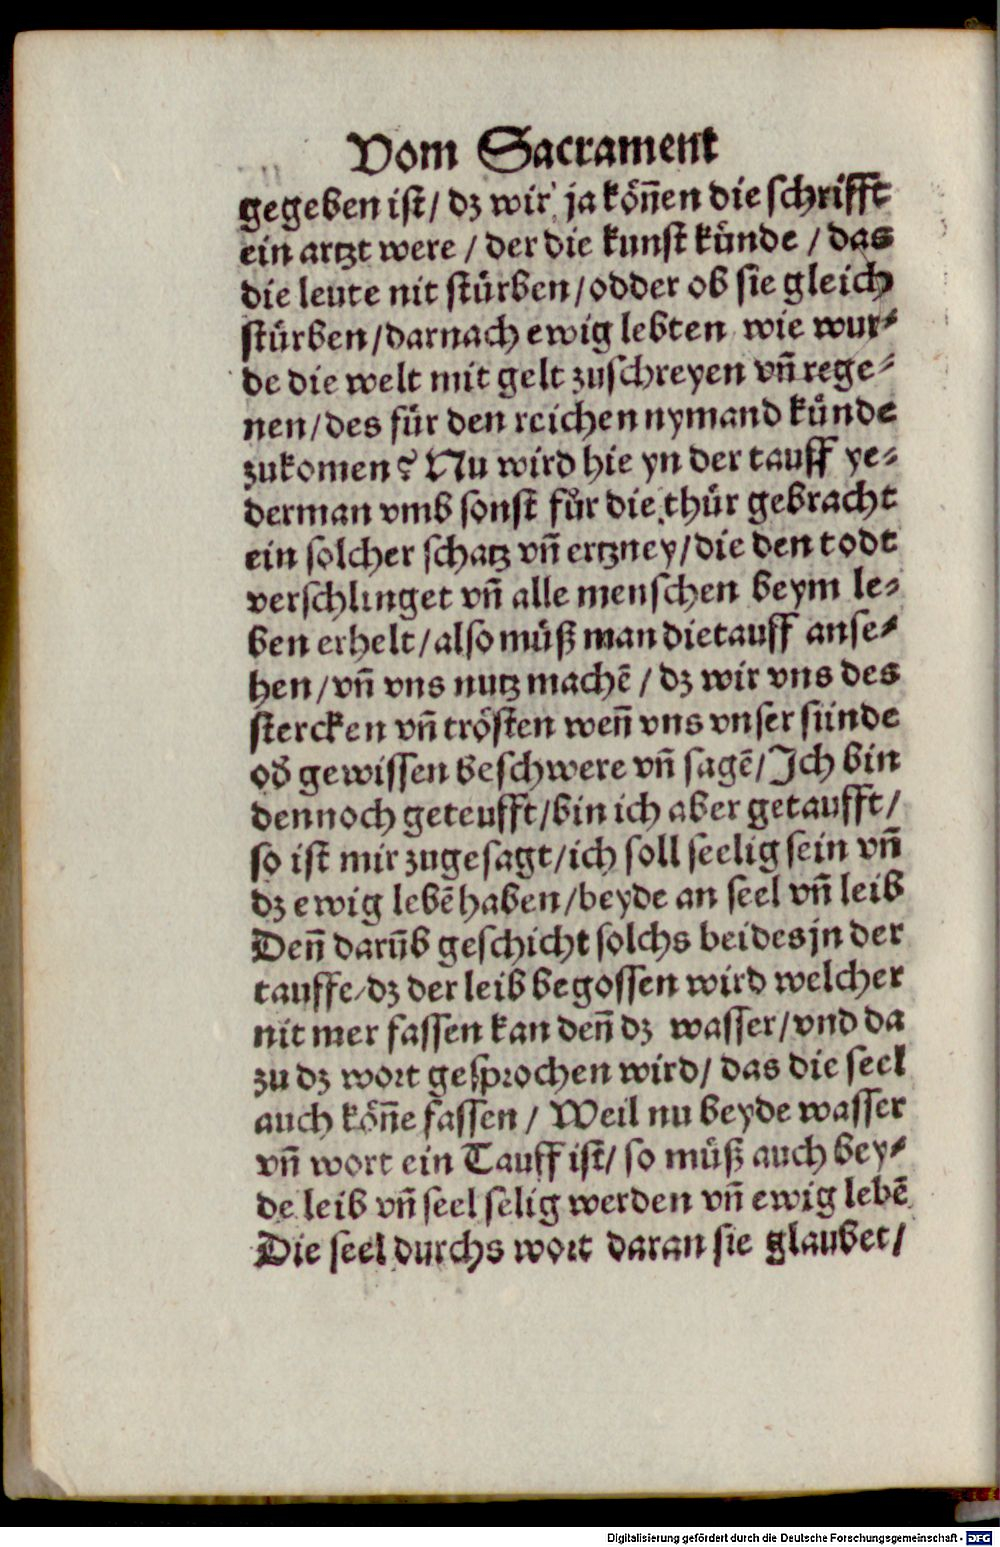 Vom Sacrament
gegeben ist/ dz wir ja köñen die schrifft
ein artzt were / der die kunst künde / das
die leute nit stürben/odder ob sie gleich
stürben/darnach ewig lebten wie wur⸗
de die welt mit gelt zuschreyen vñ rege⸗
nen/des für den reichen nymand künde
zukomen? Nu wird hie yn der tauff ye⸗
derman vmb sonst für die thür gebracht
ein solcher schatz vñ ertzney/die den todt
verschlinget vñ alle menschen beym le⸗
ben erhelt/also müß man dietauff anse⸗
hen/vñ vns nutz machē / dz wir vns des
stercken vñ trösten weñ vns vnser sünde
od̄ gewissen beschwere vñ sagē/Jch bin
dennoch geteufft/bin ich aber getaufft/
so ist mir zugesagt/ich soll seelig sein vñ
dz ewig lebē haben/beyde an seel vñ leib
Deñ darūb geschicht solchs beides jn der
tauffe/dz der leib begossen wird welcher
nit mer fassen kan deñ dz wasser/vnd da
zu dz wort gesprochen wird/ das die seel
auch köñe fassen / Weil nu beyde wasser
vñ wort ein Tauff ist/ so müß auch bey⸗
de leib vñ seel selig werden vñ ewig lebē
Die seel durchs wort daran sie glaubet/
Digitalisierung gefördert durch die Deutsche Forschungsgemeinschaft - DFG